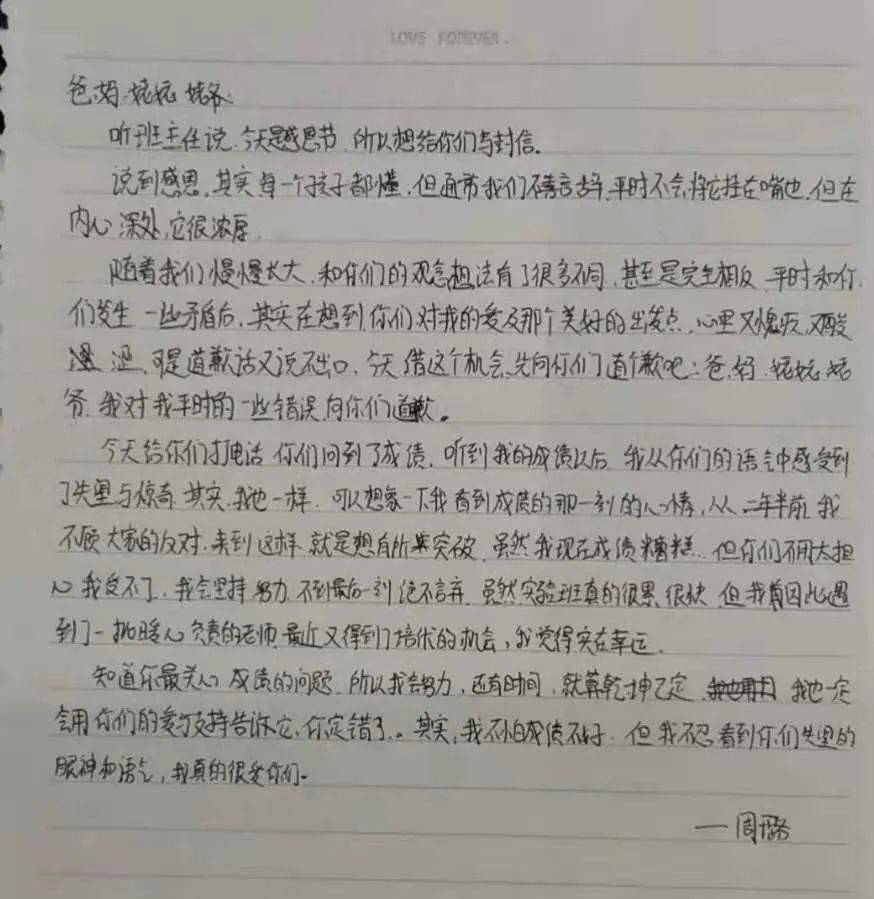 LOVE FOREVER.
爸.妈.姥姥.姥爷.
听班主任说.今天是感恩节.所以想给你们写封信。
说到感恩.其实每一个孩子都懂.但通常我们不善言辞.平时不会将它挂在嘴边.但在
内心深处.它很浓厚.
随着我们慢慢长大.和你们的观念想法有了很多不同.甚至是完全相反.平时和你
们发生一些矛盾后.其实在想到你们对我的爱及那个美好的出发点.心里又愧疚.又酸
涩.可是道歉话又说不出口.今天借这个机会.先向你们道个歉吧:爸.妈.姥姥.姥
爷.我对我平时的一些错误向你们道歉。
今天给你们打电话你们问到了成绩.听到我的成绩以后.我从你们的语气中感受到
了失望与惊奇.其实.我也一样.可以想象一下我看到成绩的那一刻的心情,从二年半前.我
不顾大家的反对.来到这样.就是想有所突破.虽然我现在成绩糟糕..但你们不用太担
心我受不了.我会坚持努力.不到最后一刻绝不言弃.虽然实验班真的很累.很快.但我有因此遇
到了一批暖心负责的老师.最近又得到了培优的机会,我觉得实在幸运.
知道你最关心成绩的问题.所以我会努力,还有时间,就算乾坤已定.我也一定
会用你们的爱与支持告诉它.你定错了。其实,我不怕成绩不好.但我不忍看到你们失望的
眼神和语气,我真的很爱你们.
——周璐